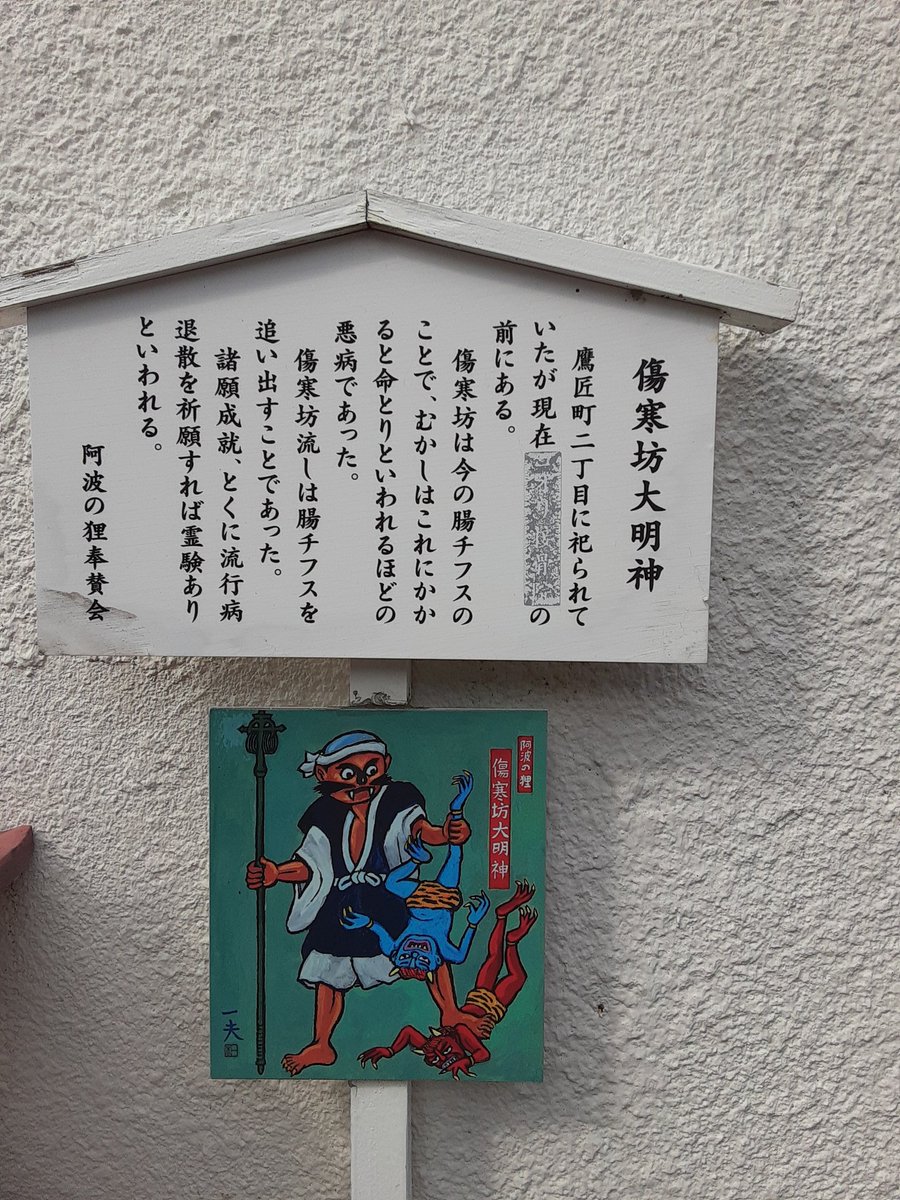 傷寒坊大明神
鷹匠町二丁目に祀られて
いたが現在の
前にある。
傷寒坊は今の腸チフスの
ことで、むかしはこれにかか
ると命とりといわれるほどの
悪病であった。
傷寒坊流しは腸チフスを
追い出すことであった。
諸願成就、とくに流行病
退散を祈願すれば霊験あり
といわれる。
阿波の狸奉賛会
阿波の狸
傷寒坊大明神
一夫